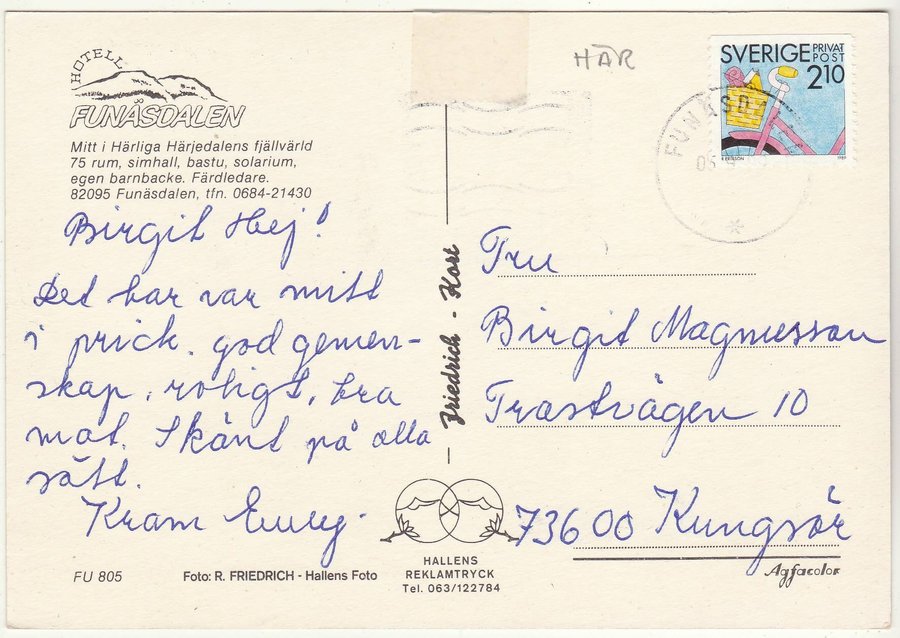 HOTELL
FUNÄSDALEN
Mitt i Härliga Härjedalens fjällvärld
75 rum, simhall, bastu, solarium,
egen barnbacke. Färdledare.
82095 Funäsdalen, tfn. 0684-21430
Birgit Hej!
Det har var mitt
i prick. god gemen-
skap, roligt, bra
mat. Skönt på alla
sätt.
Kram
FU 805
Foto: R. FRIEDRICH - Hallens Foto
Friedrich - Kort
HALLENS
REKLAMTRYCK
Tel. 063/122784
HÄR
SVERIGE PRIVAT
POST
2.10
R ERIKSON 1989
FUNÄSDA
Fru
Birgit Magnusson
Trastvägen 10
73600 Kungsör
Agfacolor